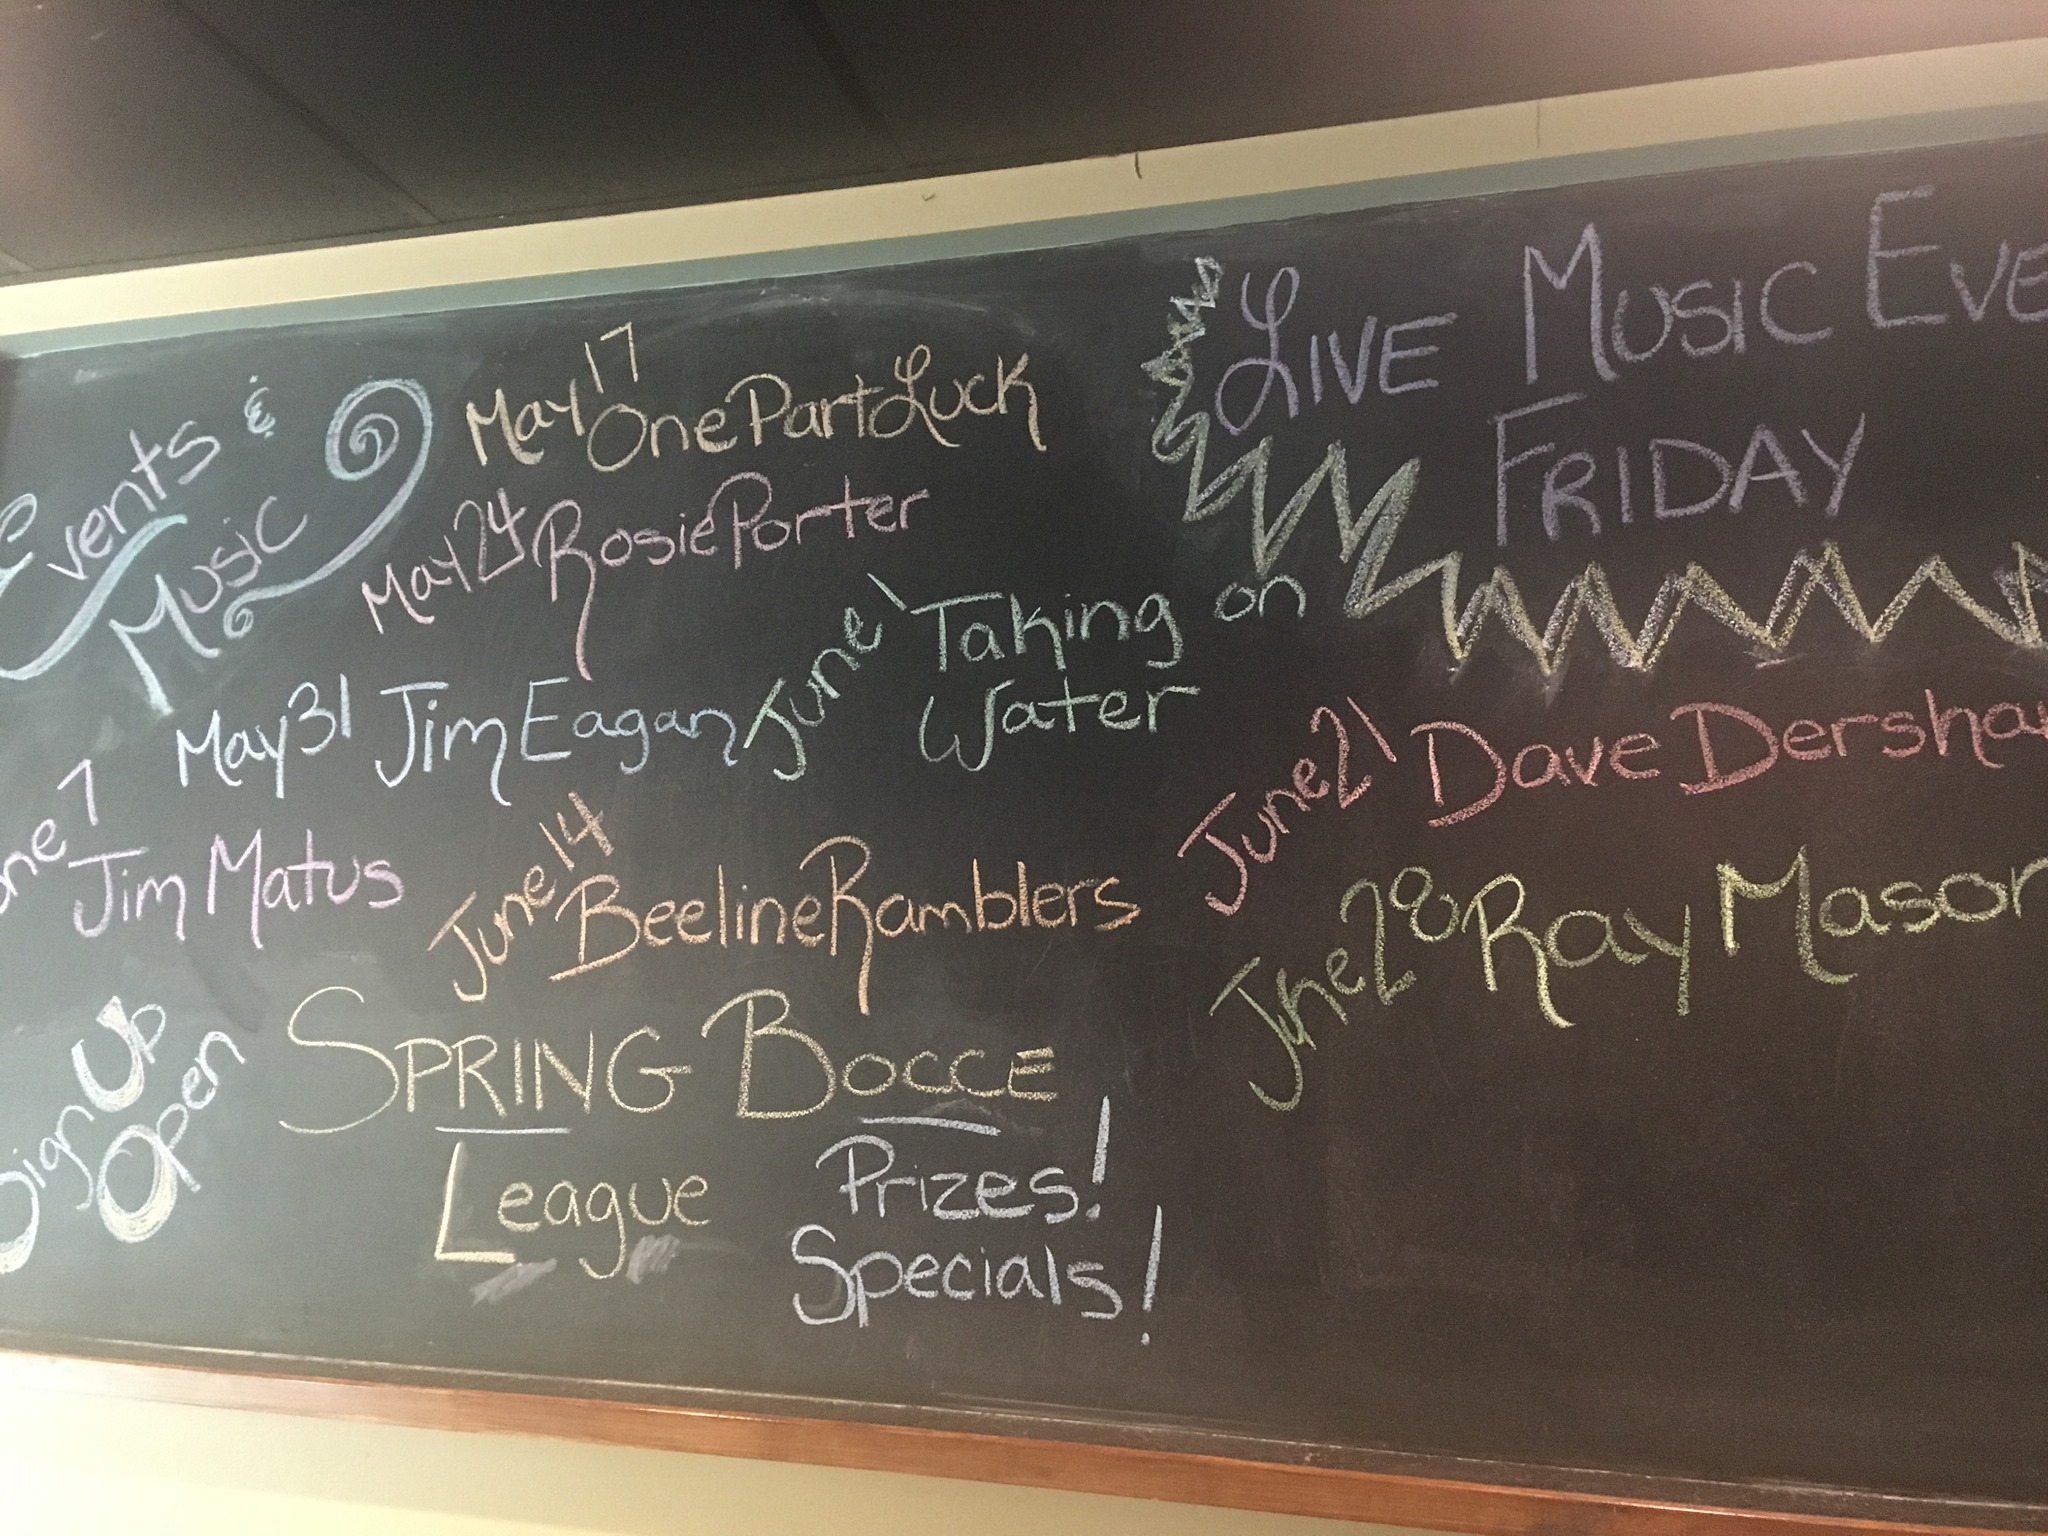 Events &
Music
May 17 One Part Luck
May 24 Rosie Porter
May 31 Jim Eagan
June 1 Taking on
Water
une 7
Jim Matus
June 14 Beeline Ramblers
Sign Up
Open
SPRING BOCCE
League
Prizes!
Specials!
LIVE MUSIC EVE
FRIDAY
June 21 Dave Dersha
June 28 Ray Mason